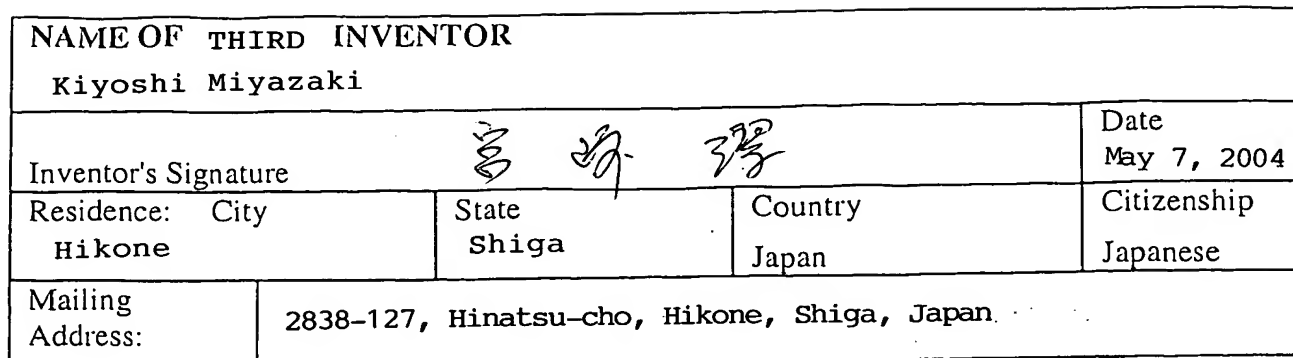 NAME OF THIRD INVENTOR
Kiyoshi Miyazaki
Inventor's Signature 宮崎
Date
May 7, 2004
Residence: City
Hikone
State
Shiga
Country
Japan
Citizenship
Japanese
Mailing
Address:
2838-127, Hinatsu-cho, Hikone, Shiga, Japan